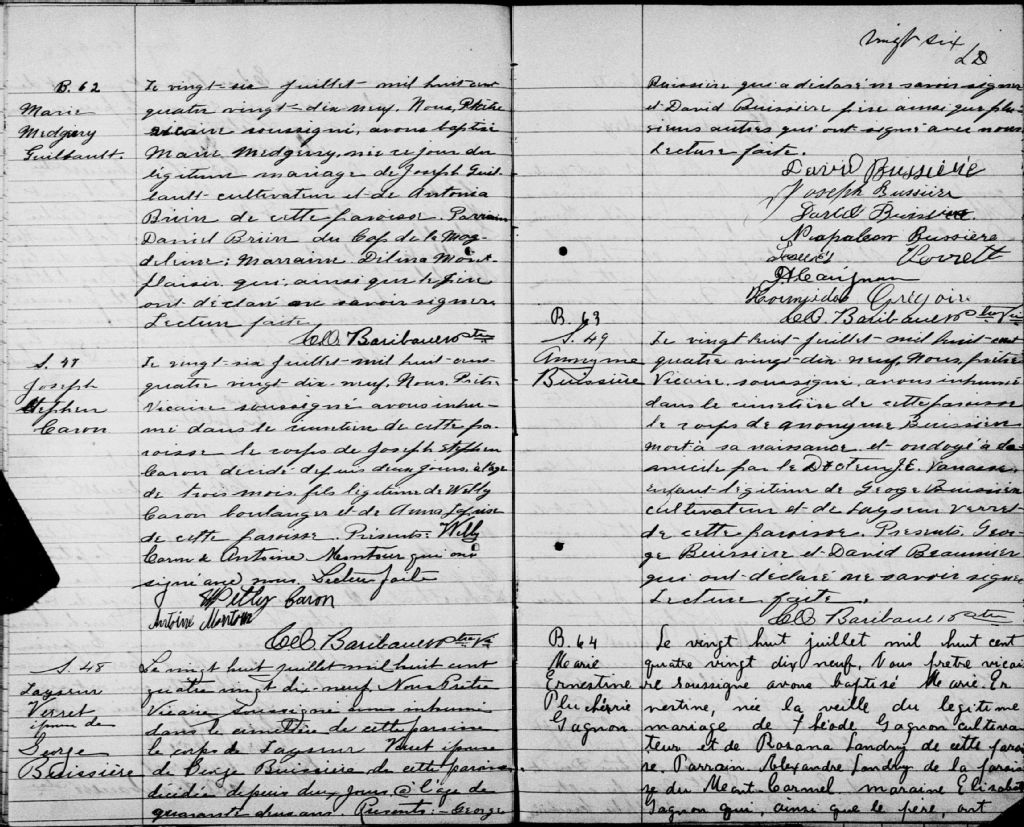 B. 62
Marie
Medgery
Guilbault.
Le vingt-six juillet mil huit cent
quatre vingt-dix-neuf, Nous, Prêtre
vicaire soussigné, avons baptisé
Marie Medgery, née ce jour du
légitime mariage de Joseph Guil-
bault cultivateur et de Antonia
Brien de cette paroisse. Parrain
Daniel Brien du Cap de la Mag-
deleine; Marraine Délina Mont-
plaisir qui, ainsi que le père
ont déclaré ne savoir signer.
Lecture faite
Baribeau ptre
S. 47
Joseph
Stephen
Caron
Le vingt-six juillet mil huit cent
quatre vingt-dix-neuf, Nous, Prêtre
Vicaire soussigné avons inhu-
mé dans le cimetière de cette pa-
roisse le corps de Joseph Stephen
Caron décédé depuis deux jours, à l'âge
de trois mois, fils légitime de Willy
Caron boulanger et de Anna
de cette paroisse. Présents: Willy
Caron & Antoine Montour qui ont
signé avec nous. Lecture faite
Willy Caron
Antoine Montour
Baribeau ptre Vic
S. 48
Layseur
Verret
épouse de
George
Buissière
Le vingt huit juillet mil huit cent
quatre vingt dix-neuf. Nous Prêtre
Vicaire soussigné avons inhumé
dans le cimetière de cette paroisse
le corps de Layseur Verret épouse
de George Buissière de cette paroisse
décédée depuis deux jours à l'âge de
quarante deux ans. Présents: George
vingt six
LD
Buissière qui a déclaré ne savoir signer
et David Buissière fere ainsi que plu-
sieurs autres qui ont signé avec nous
Lecture faite.
David Bussière
Joseph Bussière
David Buissière
Napoleon Bussière
Verrett
Hormisdas Grégoire
Baribeau ptre Vic
B. 63
S. 49
Anonyme
Buissière
Le vingt huit juillet mil huit cent
quatre vingt-dix-neuf, Nous, prêtre
Vicaire, soussigné, avons inhumé
dans le cimetière de cette paroisse
le corps de anonyme Buissière
mort à sa naissance et ondoyé à do-
micile par le Docteur J.E. Vanasse,
enfant légitime de George Buissière
cultivateur et de Layseur Verret
de cette paroisse. Présents. Geor-
ge Buissière et David Beaumier
qui ont déclaré ne savoir signer
Lecture faite.
Baribeau ptre
B. 64
Marie
Ernestine
Plucherrie
Gagnon
Le vingt huit juillet mil huit cent
quatre vingt dix neuf, Nous prêtre vicai
re soussigné avons baptisé Marie. Er
nestine, née la veille du légitime
mariage de Théode Gagnon cultiva-
teur et de Rosana Landry de cette parois
se. Parrain Alexandre Landry de la parois
se du Mont-Carmel, maraine Elisabet
Gagnon qui, ainsi que le père, ont